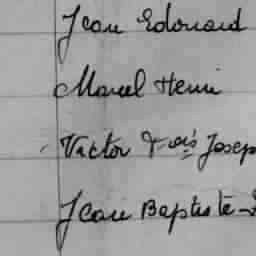 Jean Edouard
Marcel Henri
Victor Frçois Josep
Jean Baptiste